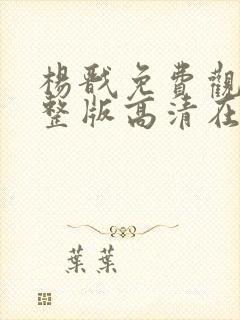 楊戩免費觀
整版高清在
葉葉